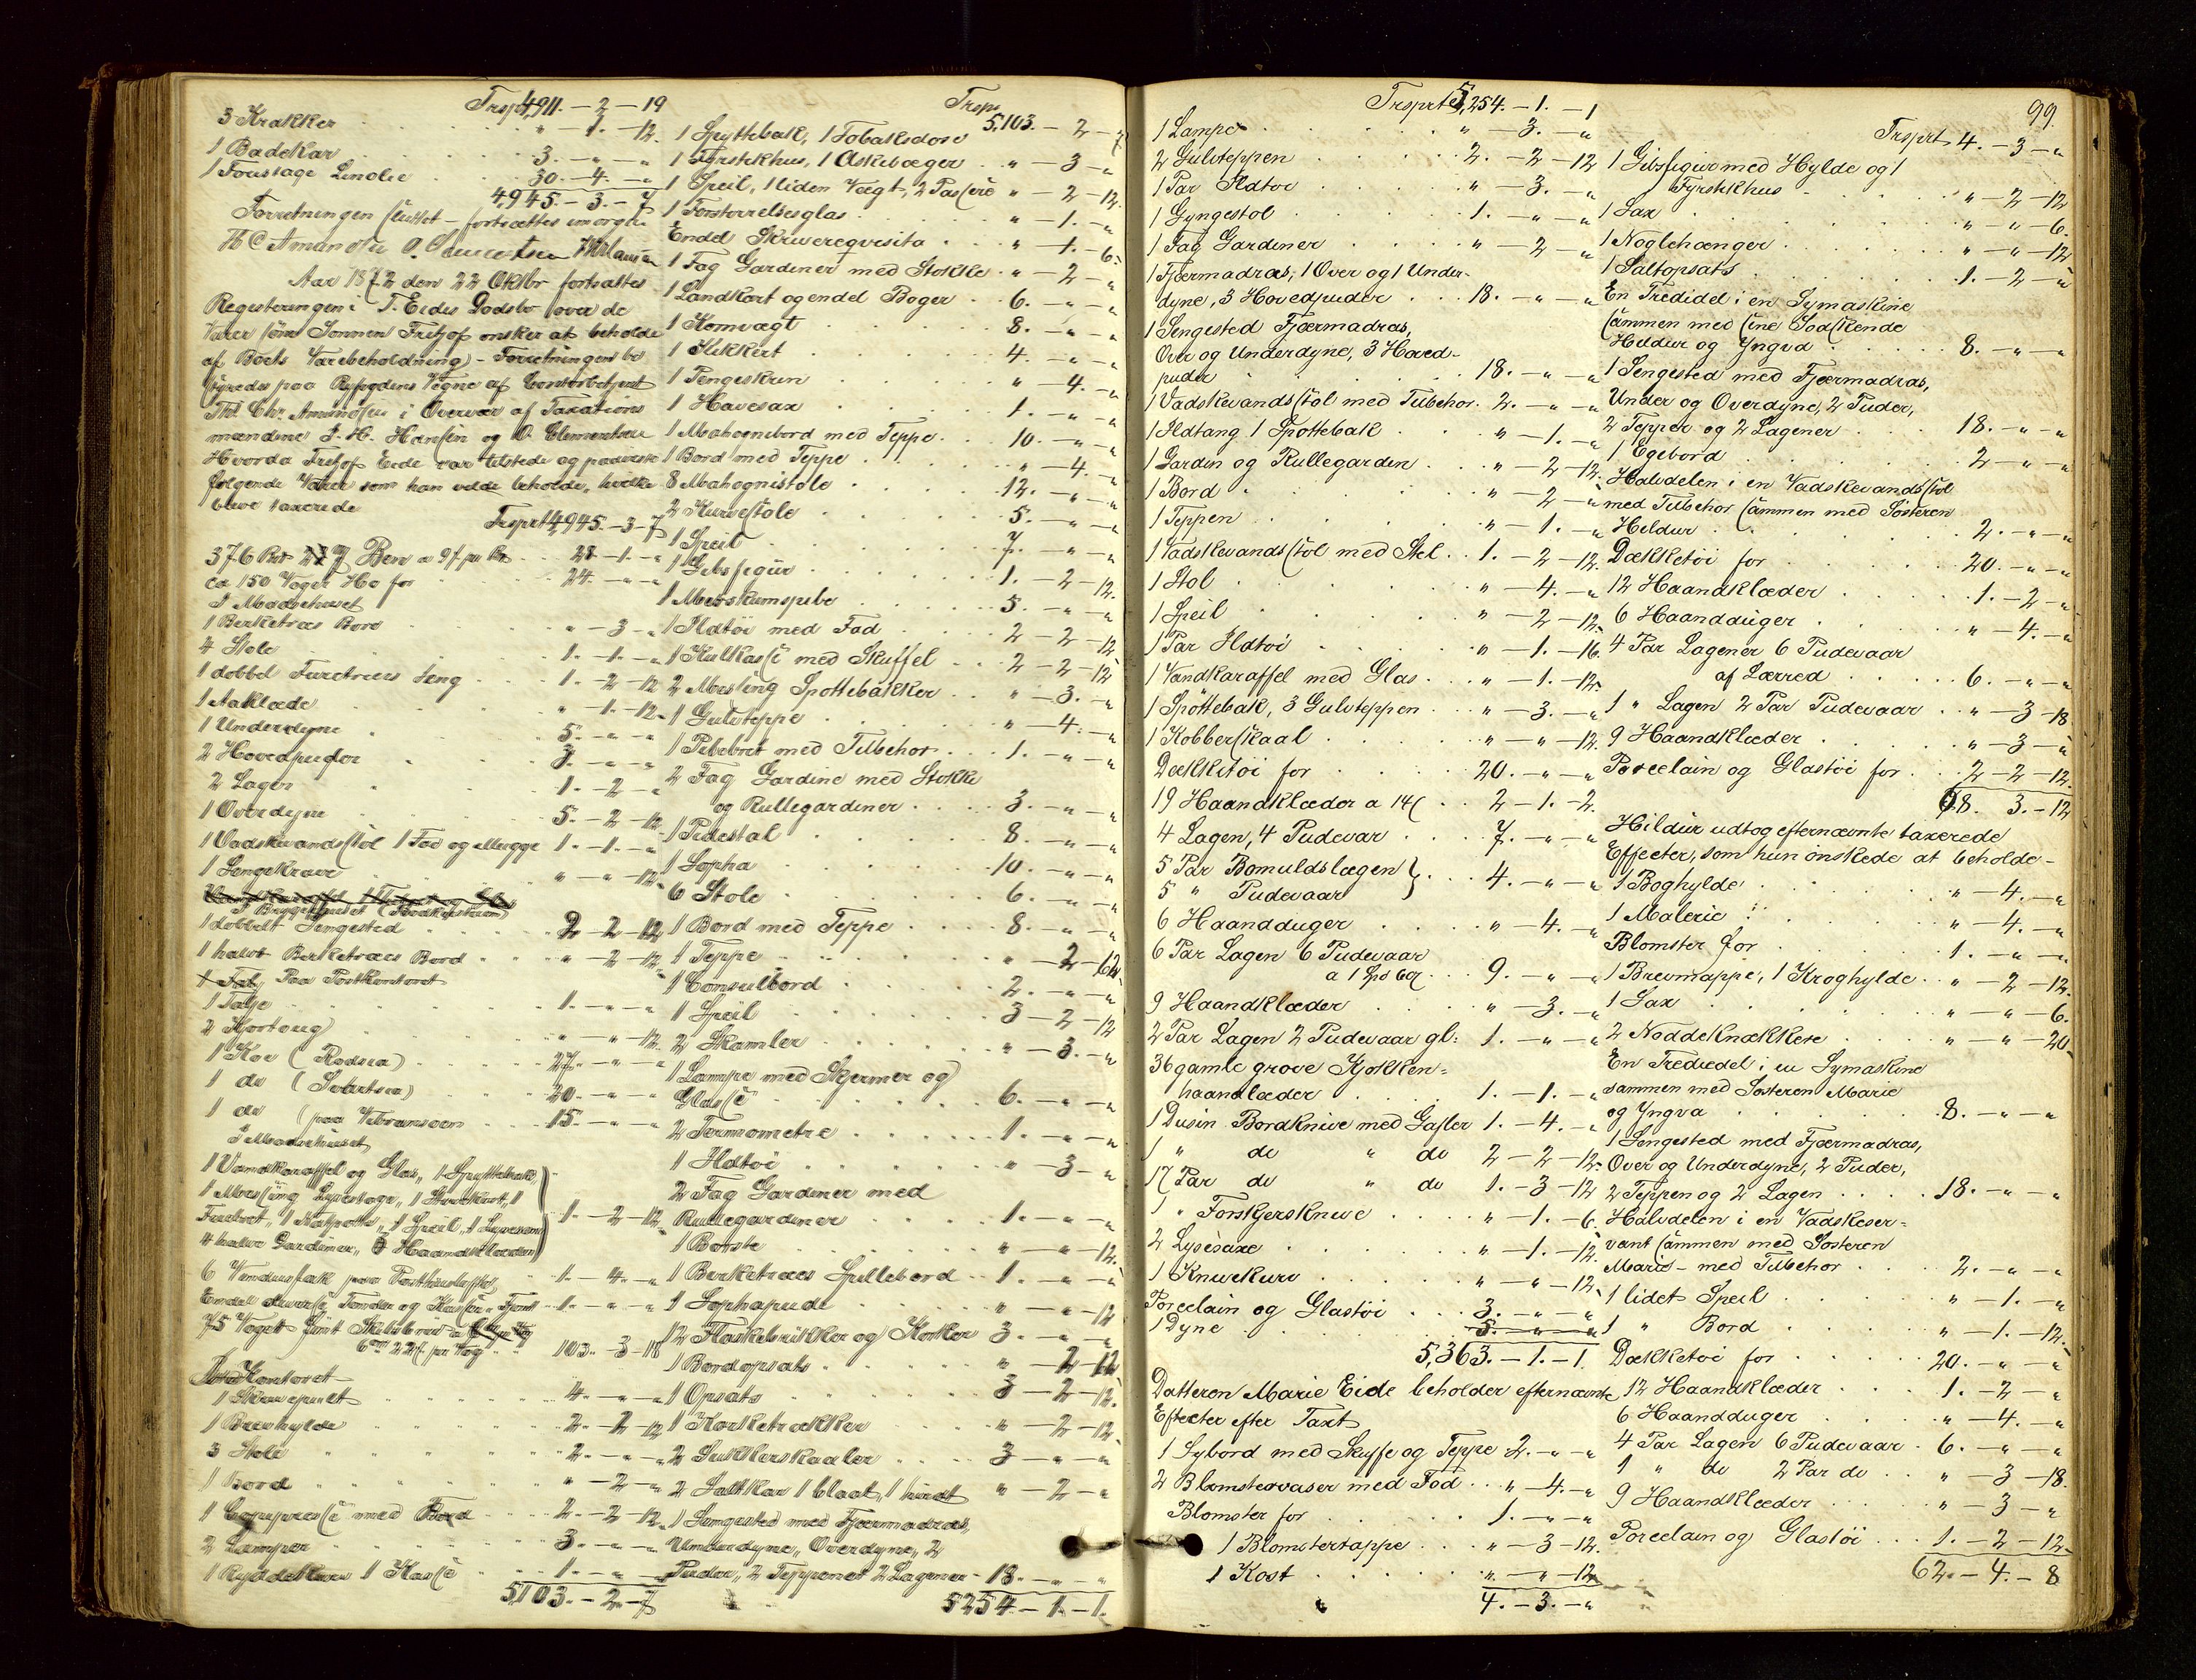 Trsprt 4,911. - 2 - 19
3 Krakker " - 1. - 12.
1 Badekar 3. - " - "
1 Foustage Linolie 30. - 4. - "
4,945. - 3. - 7
Forretningen sluttet - fortsættes imorgen
Aar 1872 den 22 Oktbr fortsattes
Registeringen i T. Eides Dødsbo over de
Varer som Sønnen Fritjof ønsker at beholde
af Boets Varebeholdning - Forretningen be
styredes paa Byfogdens Vegne af Contorbetjent
Thd. Chr. Amundsen i Overvær af Taxations
mændene J. H. Hansen og O. Clementsen
Hvorda Fritjof Eide var tilstede og paaviste
følgende Varer som han vilde beholde, hvilke
bleve taxerede
Trsprt 4,945. - 3 - 7
ca 150 Voger Hø for 24. - " - "
1 Birketræes Bord " - 3 - "
4 Stole 1. - 1. - "
1 dobbel Furetræes Seng 1. - 2 - 12
1 Aaklæde " - 1. - 12.
1 Underdyne 5. - " - "
2 Hovedpuder 3. - " - "
2 Lagen 1. - 2 - "
1 Overdyne 5. - 2 - 12
1 Vadskevandsstol 1 Fad og Mugge 1. - 1. - "
1 Sengekrave " - " - 12.
1 dobbelt Sengested 2 - 2 - 12
1 halvt Birketræes Bord " - 2 - 12.
Paa Postkontoret
1 Talje 1. - " - "
2 Hjortoug " - " - 12.
1 Koe (Rødsia) 27. - " - "
1 do (Svartsia) 20. - " - "
1 do (paa Vibransøen 15. - " - "
1 Vandkaraffel og Glas, 1 Spyttebak
1 Messing Lysestage, 1 Skrivekort, 1
1 Speil, 1 Lysesax 1. - 2 - 12.
4 halve Gardiner, Haandklæder
6 1. - 4. - "
1. - " - "
103. - 3 - 18
1 Skrivepult 4. - " - "
1 Brevhylde 2. - 2 - 12
3 Stole 2. - " - "
1 Bord " - 2 - "
1 Copiepresse med Bord 2. - 2 - 12
2 Lamper 3. - " - "
1 Kasse 1. - " - "
5,103. - 2 - 7
Trspr 5,103. - 2 - 7
1 Spyttebak, 1 Tobaksdose
1 Fyrstikhus, 1 Askebæger " - 3 - "
1 Speil, 1 liden Vægt, 2 Passere " - 2 - 12.
1 Forstørrelsesglas " - 1. - "
Endel Skriverequisita " - 1. - 6.
1 Fag Gardiner med Stokke " - 2 - "
1 Landkort og endel Bøger 6. - " - "
1 Kornvægt 8. - " - "
1 Kikkert 4. - " - "
1 Pengeskrin " - 4. - "
1 Havesax 1. - " - "
1 Mahognibord med Teppe 10. - " - "
1 Bord med Teppe " - 4. - "
8 Mahognistole 12. - " - "
2 Kurvestole 5. - " - "
1 Speil 7. - " - "
1 Gibsfigur 1. - 2 - 12.
1 Merskumspibe 5. - " - "
1 Ildtøi med Fad 2 - 2 - 12
1 Kulkasse med Skuffel 2 - 2 - 12
2 Messing Spøttebakker " - 3. - "
1 Gulvteppe " - 4. - "
1 Pibebret med Tilbehør 1. - " - "
2 Fag Gardine med Stokke
og Rullegardiner 3. - " - "
1 Pidestal 8. - " - "
1 Sopha 10. - " - "
6 Stole 6. - " - "
1 Bord med Teppe 8. - " - "
1 Teppe " - 2 - 12
1 Consulbord 2. - " - "
1 Speil 3 - 2 - 12
2 Skamler " - 3. - "
1 Lampe med Skjermer og
Glasse 6. - " - "
2 Termometre 1. - " - "
1 Ildtøi " - 3 - "
2 Fag Gardiner med
Rullegardiner 1. - " - "
1 Børste " - " - 12.
1 Birketræes Spillebord 1. - " - "
1 Sophapude " - " - 12
12 Flaskebrikker og Korker 3. - " - "
1 Bordopsats " - 2 - 12
1 Opsats 3 - 2 - 12.
1 Korketrækker " - 2 - 12
2 Sukkerskaaler 3 - " - "
2 Saltkar 1 blaat, 1 hvidt " - 2 - "
1 Sengested med Fjærmadras,
Underdyne, Overdyne, 2
Puder, 2 Tepper og 2 Lagener 18. - " - "
5254. - 1. - 1.
99.
Trsprtes 5,254. - 1. - 1
1 Lampe " - 3. - "
2 Gulvteppen 2. - 2 - 12
1 Par Ildtøi " - 3. - "
1 Gyngestol 1. - " - "
1 Fag Gardiner " - 2 - "
1 Fjærmadras, 1 Over og 1 Under-
dyne, 3 Hovedpuder 18. - " - "
1 Sengested Fjærmadras,
Over og Underdyne, 3 Hoved-
puder 18. - " - "
1 Vadskevandsstol med Tilbehør. 2. - " - "
1 Ildtang 1 Spøttebak " - 1. - "
1 Gardin og Rullegardin " - 2 - 12.
1 Bord " - 2 - "
1 Teppen " - 1. - "
1 Vadskevandsstol med Stel 1. - 2 - 12.
1 Stol " - 4. - "
1 Speil " - 2 - 12.
1 Par Ildtøi " - 1. - 16.
1 Vandkaraffel med Glas " - 1. - 12.
1 Spøttebak, 3 Gulvteppen " - 3. - "
1 Kobberskaal " - " - 12.
Dækketøi for 20. - " - "
19 Haandklæder a 14ſ 2 - 1. - 2.
4 Lagen, 4 Pudevar 7. - " - "
5 Par Bomuldslagen } 4. - " - "
5 " Pudevaar
6 Haandduger " - 4. - "
6 Par Lagen 6 Pudevaar
a 1 Spd 60ſ 9. - " - "
9 Haandklæder " - 3. - "
2 Par Lagen 2 Pudevaar gl: 1. - " - "
36 gamle grove Kjøkken=
haandlæder 1. - 1. - "
1 Dusin Bordknive med Gafler 1. - 4. - "
1 " do " do 2 - 2 - 12.
17 Par do " do 1. - 3 - 12
1 " Forskjersknive " - 1. - 6.
2 Lysesaxe " - 1. - 12.
1 Knivekurv " - " - 12.
Porcelain og Glastøi 3. - " - "
1 Dyne 5. - " - "
5,363. - 1 - 1.
Datteren Marie Eide beholder efternævnte
Effecter efter Taxt
1 Sybord med Skuffe og Teppe 2. - " - "
2 Blomstervaser med Fod " - 4. - "
Blomster for 1. - " - "
1 Blomstertappe " - 3 - 12.
1 Kost " - " - 12
4. - 3. - "
Trsprt 4. - 3 - "
1 Gibsfigur med Hylde og 1
Fyrstikhus " - 2 - 12
1 Sax " - " - 6.
1 Nøglehænger " - " - 12
1 Saltopsats 1. - 2 - "
En Tredidel i en Symaskine
sammen med sine Sødskende
Hildur og Yngva 8. - " - "
1 Sengested med Fjærmadras,
Under og Overdyne, 2 Puder,
2 Tepper og 2 Lagener 18. - " - "
1 Egebord 2 - " - "
Halvdelen i en Vadskevandsstol
med Tilbehør sammen med Søsteren
Hildur 2. - " - "
Dækketøi for 20. - " - "
12 Haandklæder 1. - 2 - "
6 Haandduger " - 4. - "
4 Par Lagener 6 Pudevaar
af Lærred 6. - " - "
1 " Lagen 2 Par Pudevaar " - 3 - 18.
9 Haandklæder " - 3 - "
Porcelain og Glastøi for 2 - 2 - 12.
68. 3. - 12
Hildur udtog efternævnte taxerede
Effecter, som hun ønskede at beholde -
1 Boghylde " - 4. - "
1 Malerie " - 4. - "
Blomster for 1. - " - "
1 Brevmappe, 1 Kroghylde " - 2 - 12.
1 Sax " - " - 6.
2 Nøddeknækkere " - " - 20
En Trediedel i en Symaskine
sammen med Søsteren Marie
og Yngva 8. - " - "
1 Sengested med Fjærmadras,
Over og Underdyne, 2 Puder,
2 Teppen og 2 Lagen 18. - " - "
Halvdelen i en Vadskeser=
vant sammen med Søsteren
Marie - med Tilbehør 2. - " - "
1 lidet Speil " - 1. - "
1 " Bord " - 1. - 12.
Dækketøi for 20. - " - "
12 Haandklæder 1. - 2 - "
6 Haandduger " - 4. - "
4 Par Lagen 6 Pudevaar 6. - " - "
1 " do 2 Par do " - 3 - 18.
9 Haandklæder " - 3 - "
Porcelain og Glastøi 1. - 2 - 12
62. - 4. - 8